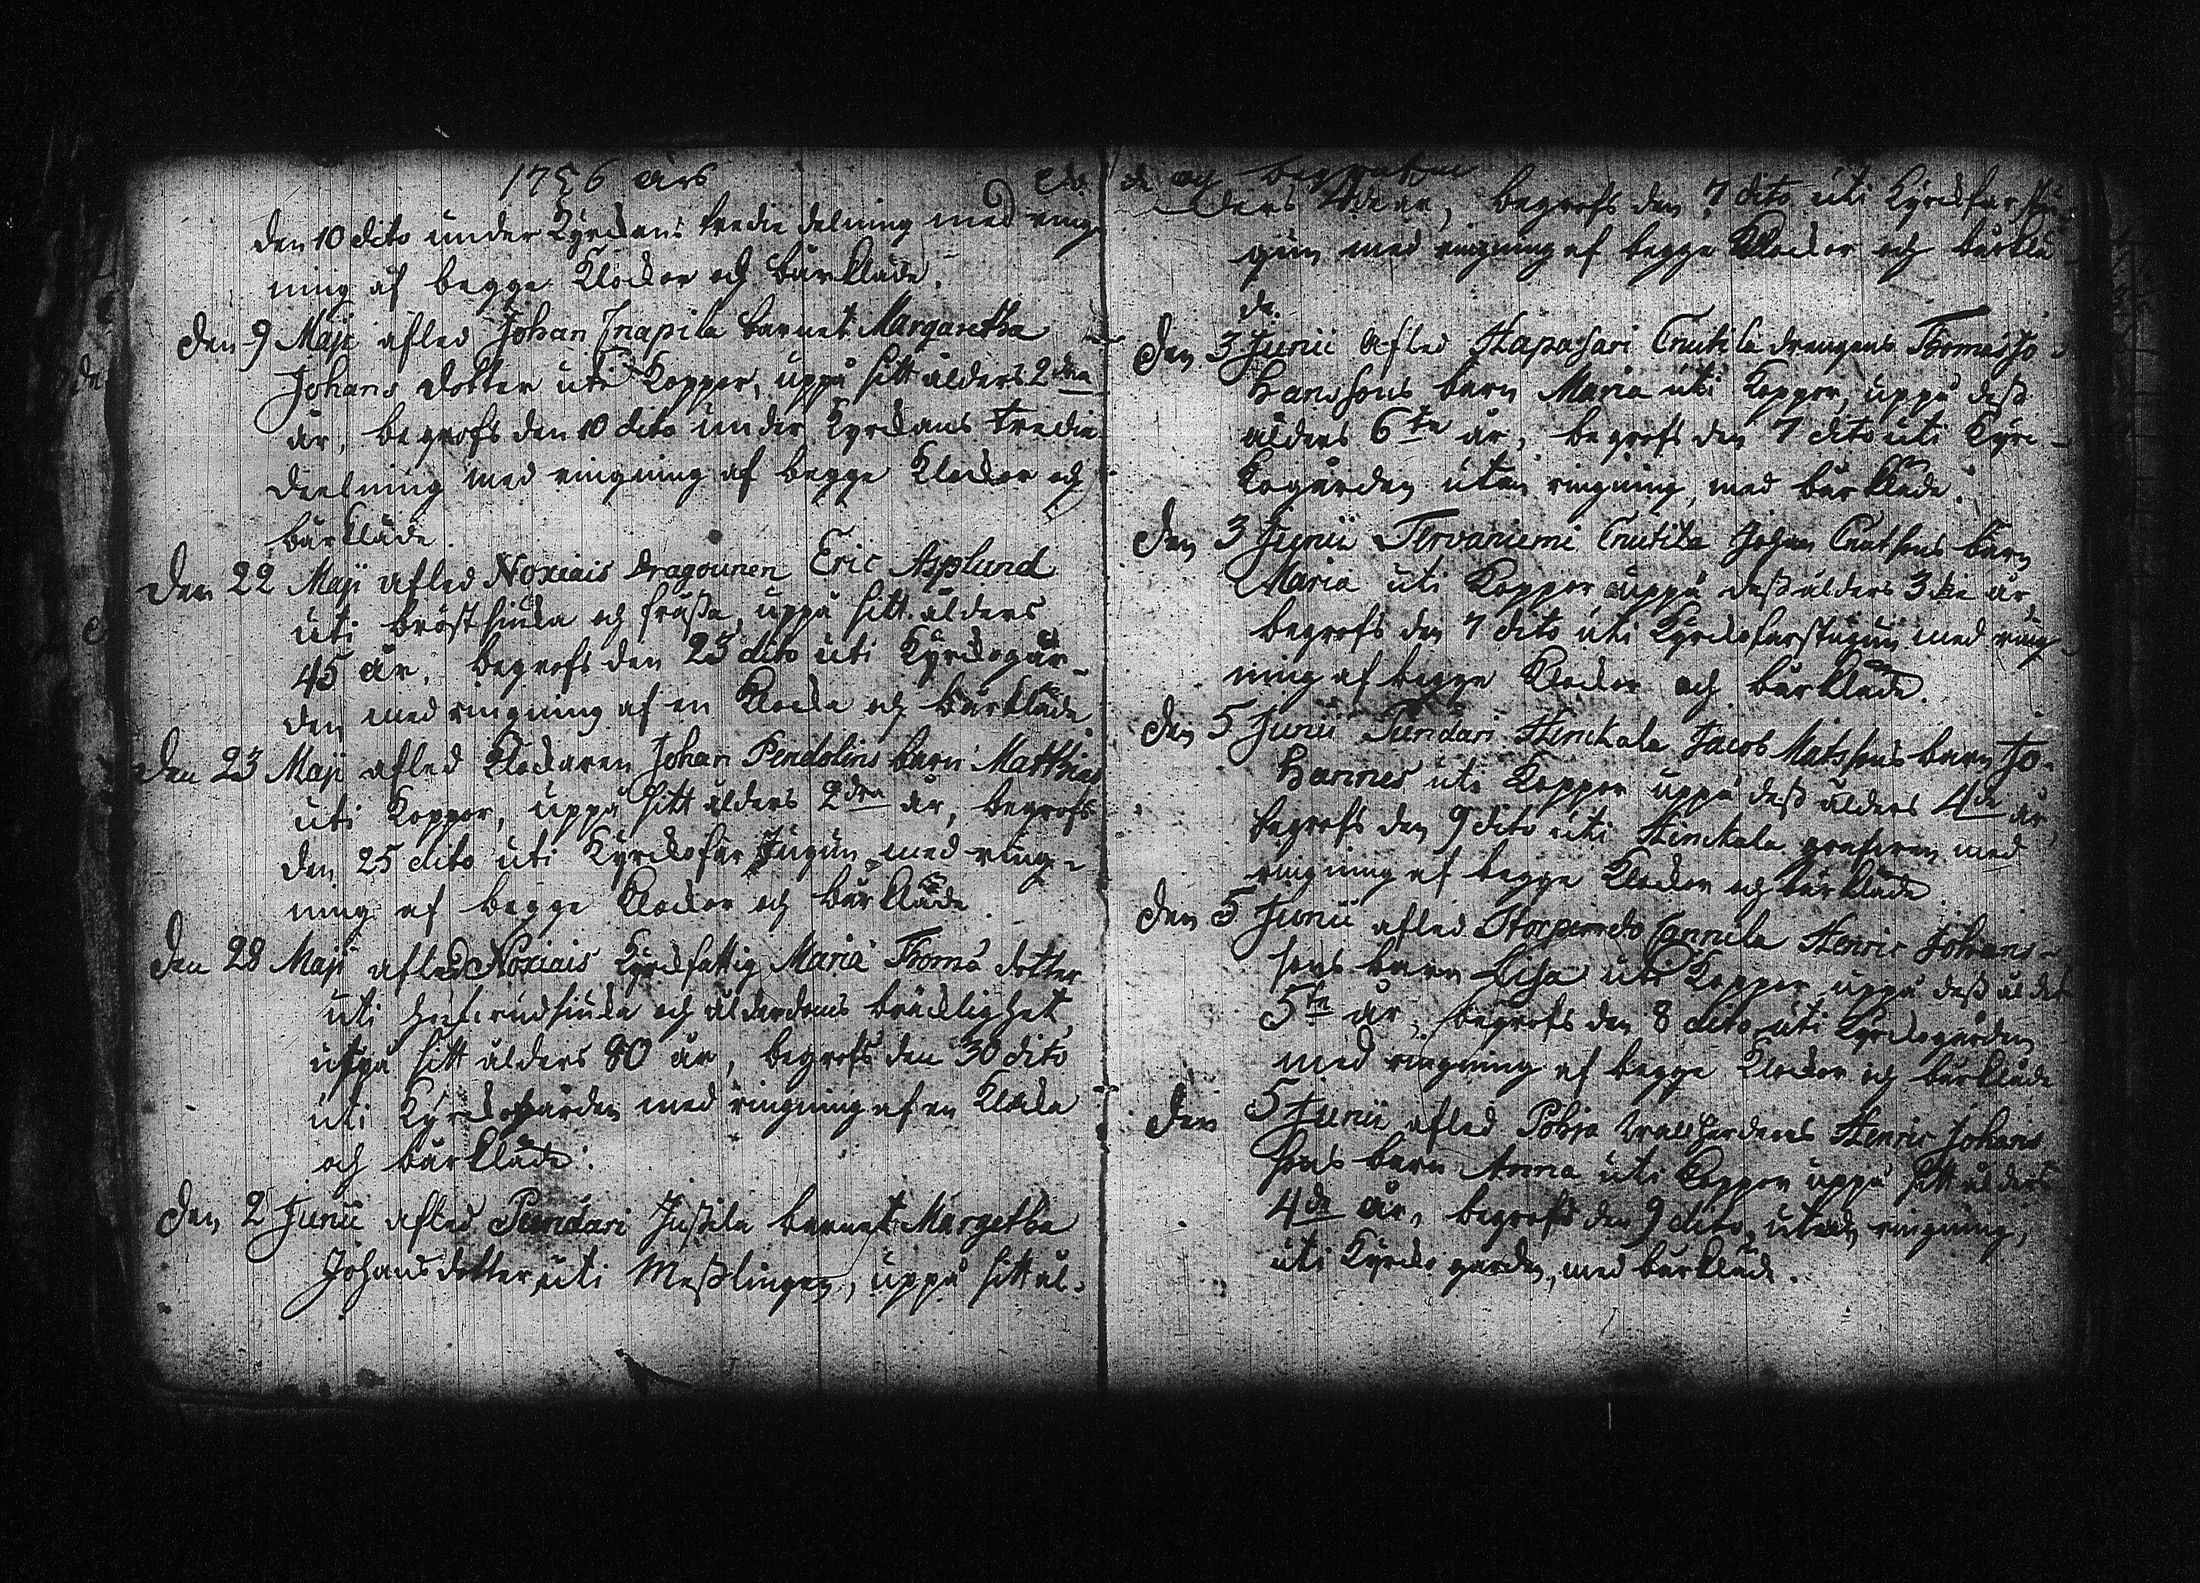 1756 års
den 10 dito under Kyrckans tredie delning med ring-
ning af begge Klockor och bårkläde.
Den 9 Maji afled Johan Inapila barnet Margaretha
Johans dotter uti Koppor, uppå sitt ålders 2dra
år, begrofs den 10 dito under Kyrckans tredie
deelning med ringning af begge Klockor och
bårkläde
Den 22 Maji afled Noxiais Dragounen Eric Asplund
uti bröstsiuka och frässa, uppå sitt ålders
45 år, begrofs den 23 dito uti Kyrckogår-
den med ringning af en Klocka och bårkläde
Den 23 Maji afled Klockaren Johan Pendolins barn Matthias
uti Koppor, uppå sitt ålders 2dra år, begrofs
den 25 dito uti Kyrckofarstugun med ring-
ning af begge Klockor och bårkläde.
Den 28 Maji afled Noxiais Kyrckfattig Maria Thoma dotter
uti och ålderdoms bräcklighet,
uppå sitt ålders 80 år, begrofs den 30 dito
uti Kyrckogården med ringning af en Klocka
och bårkläde.
Den 2 Junii afled Pundari Jussila barnet Margetha
Johans dotter uti Messlingen, uppå sitt ål-
de och begrafne
ders 4de år, begrofs den 7 dito uti Kyrckfarstu-
gun med ringning af begge Klockor och bårklä-
de.
Den 3 Junii afled Hapasari Cnutila drengens Thomas Jo-
hanssons barn Maria uti Koppor, uppå dess
ålders 6te år, begrofs den 7 dito uti Kyrc-
kogården utan ringning, med bårkläde.
Den 3 Junii Tervaniemi Cnutila Johan Cnutsons barn
Maria uti Koppor uppå dess ålders 3die år
begrofs den 7 dito uti Kyrckofarstugun med ring-
ning af begge Klockor och bårkläde.
Den 5 Junii Pundari Hinckala Jacob Matssons barn Jo-
hannes uti Koppor uppå dess ålders 4de år,
begrofs den 9 dito uti Hinckala grafven med
ringning af begge Klockor och bårkläde.
Den 5 Junii afled Cannila Henric Johans-
sons barn Lisa uti Koppor uppå dess ålders
5te år, begrofs den 8 dito uti Kyrckogården
med ringning af begge Klockor och bårkläde
Den 5 Junii afled Pohja Henric Johans
sons barn Anna uti Koppor uppå sitt ålders
4de år, begrofs den 9 dito, utan ringning,
uti Kyrckogården, med bårkläde.